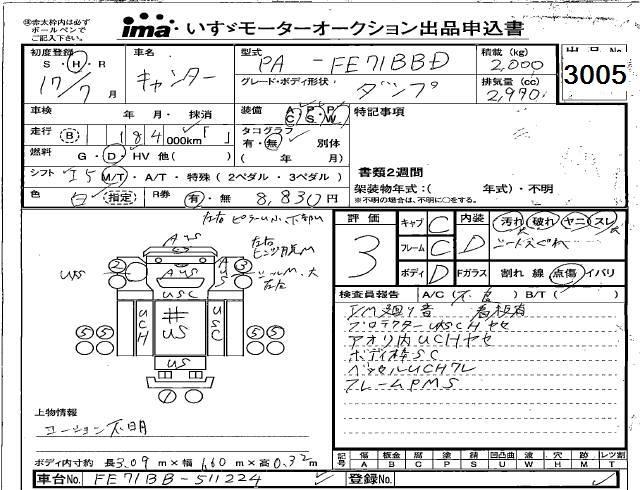 ※赤太枠内は必ず
ボールペンで
ご記入下さい。
ima いすゞモーターオークション出品申込書
初度登録 S・H・R 17/7月
車名 キャンター
型式 PA-FE71BBD
積載 (kg) 2,000
出品No
3005
グレード・ボディ形状 ダンプ
排気量 (cc) 2,990
車検 年 月 抹消
装備 AC・PS・PW
特記事項
走行 B 184 000km「 」
タコグラフ 有・無 別体
( 年 月)
燃料 G・D・HV 他( )
書類2週間
シフト I5 M/T・A/T・特殊 (2ペダル・3ペダル)
架装物年式:( 年式)・不明
※不明の場合は、不明に○をする。
色 白 指定
R券 有・無 8,830円
評価 3
キャブ C
フレーム C
ボディ D
内装 D
汚れ・破れ・ヤニ・スレ
Fガラス 割れ 線 点傷 イバリ
検査員報告 A/C(不良) B/T( )
看板有
プロテクターUSCHヤセ
アオリ内UCHヤセ
ボディ枠SC
ベッセルUCHワレ
フレームPMS
左右
AUS
2
2
US
AUS
USC
UCH
井
US
USC
5 5
5 5
US
上物情報
コーション不明
ボディ内寸約 長3.09m×幅1.60m×高0.32m
記号 傷A 板金B 腐C 塗P 錆S 凹凸曲U 波W 穴H 跡M レツ割T
車台No. FE71BB-511224
登録No.